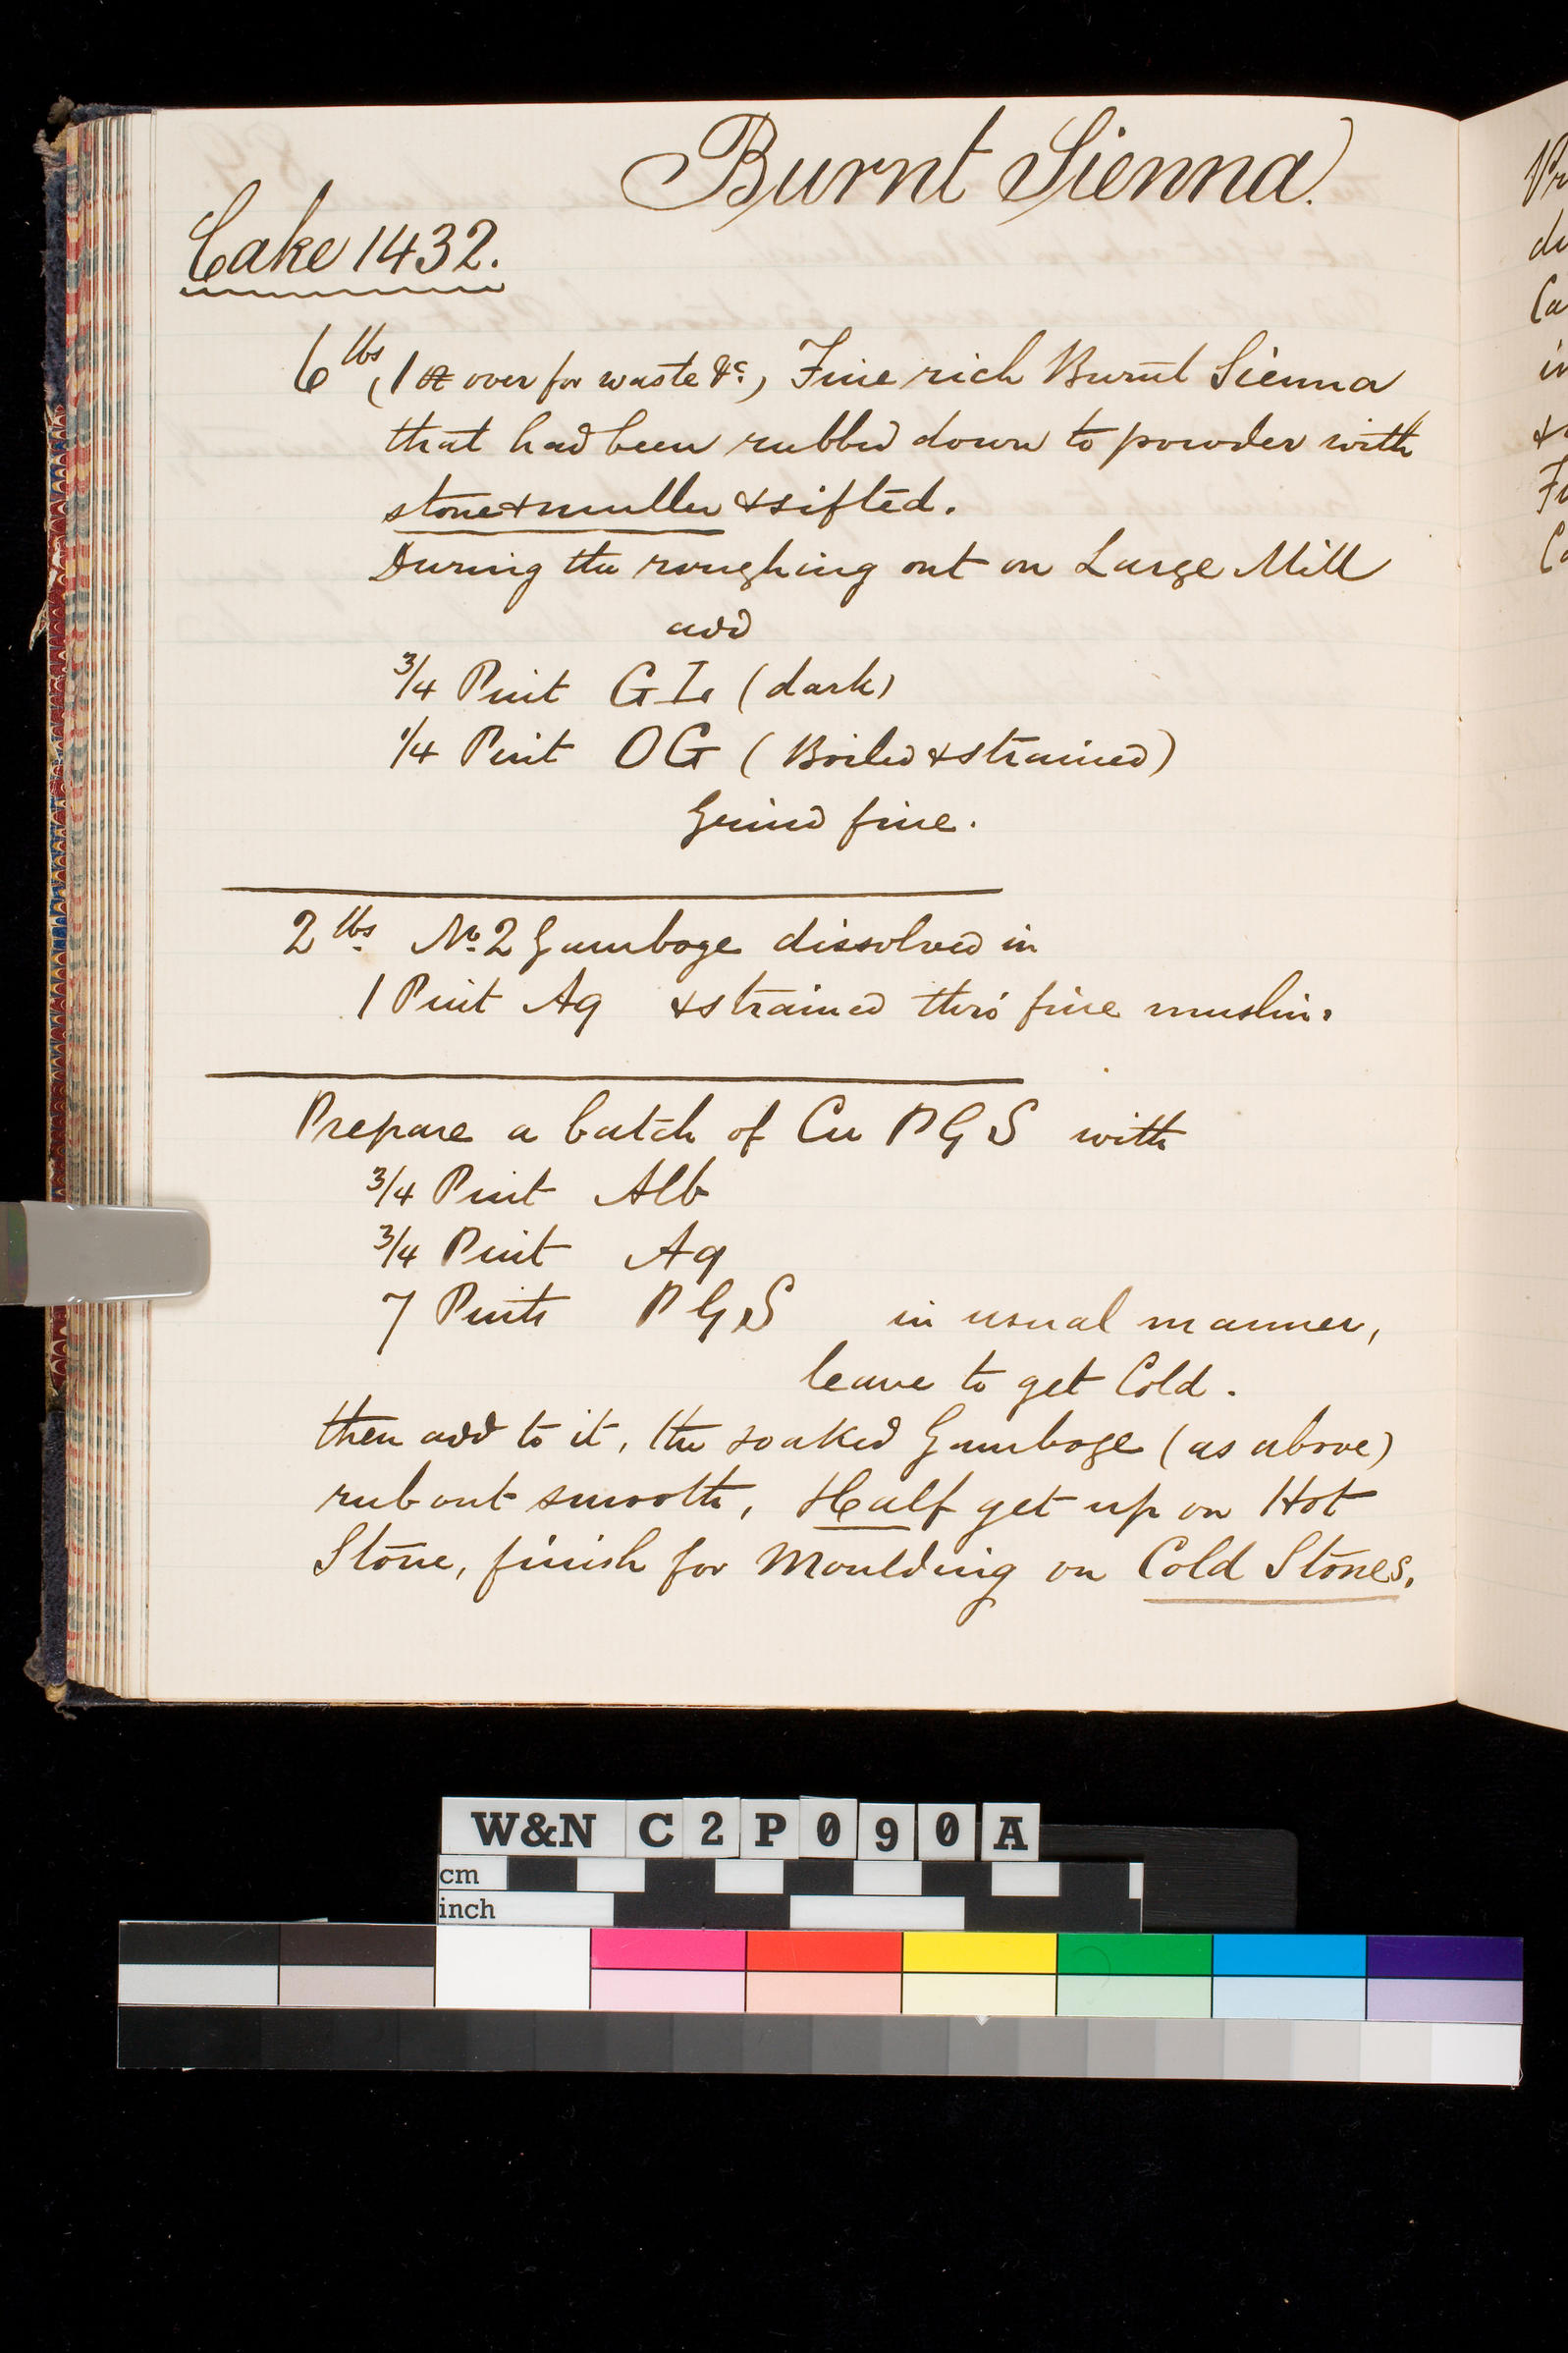 Burnt Sienna.
Cake 1432.
6 lbs, (1 oz over for waste &c,) Fine rich Burnt Sienna
that had been rubbed down to powder with
stone & muller & sifted.
During the roughing out on Large Mill
add
3/4 Pint G I (dark)
1/4 Pint OG (Boiled & strained)
Grind fine.
2 lbs. No. 2 Gamboge dissolved in
1 Pint Aq & strained thro' fine muslin.
Prepare a batch of Cu P G S with
3/4 Pint Alb
3/4 Pint Aq
7 Pints P G S in usual manner,
leave to get Cold.
then add to it, the soaked Gamboge (as above)
rub out smooth, Half get up on Hot
Stone, finish for Moulding on Cold Stones.
Pr
du
Ca
in
&
Fi
Co
W&N C2P090A
cm
inch